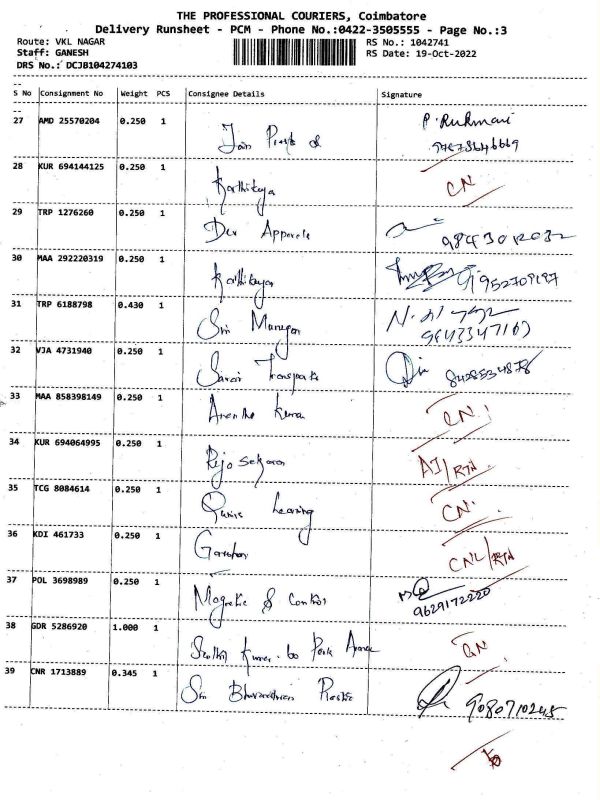 THE PROFESSIONAL COURIERS, Coimbatore
Delivery Runsheet - PCM - Phone No.:0422-3505555 - Page No.:3
Route: VKL NAGAR
RS No.: 1042741
Staff: GANESH
RS Date: 19-Oct-2022
DRS No.: DCJB104274103
S No Consignment No Weight PCS Consignee Details Signature
27 AMD 25570204 0.250 1 Jain P. Rukmani
28 KUR 694144125 0.250 1 Karthikeya CN
29 TRP 1276260 0.250 1 Dev Apparels
30 MAA 292220319 0.250 1 Karthikeyan
31 TRP 6188798 0.430 1 Sri Murugan
32 VJA 4731940 0.250 1 Transports
33 MAA 858398149 0.250 1 Anantha Kumar CN
34 KUR 694064995 0.250 1 Rajasekaran AI/RTN
35 TCG 8084614 0.250 1 CN
36 KDI 461733 0.250 1 CNL/RTN
37 POL 3698989 0.250 1 Magnetic & Control 9629172220
38 GDR 5286920 1.000 1
39 CNR 1713889 0.345 1 Sri 9080710245